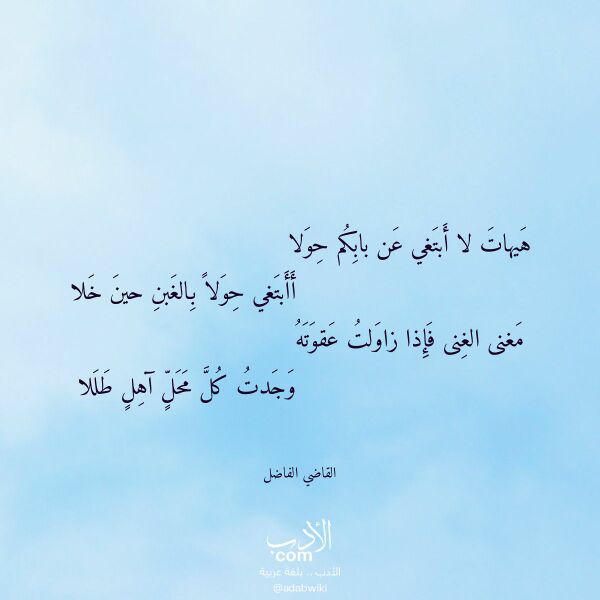 هَيهاتَ لا أَبتَغي عَن بابِكُم حِوَلا
أَأَبتَغي حِوَلاً بِالغَبنِ حينَ خَلا
مَغنى الغِنى فَإِذا زاوَلتُ عَقوَتَهُ
وَجَدتُ كُلَّ مَحَلٍّ آهِلٍ طَلَلا
القاضي الفاضل
الأدب
com
الأدب .. بلغة عربية
@adabwiki